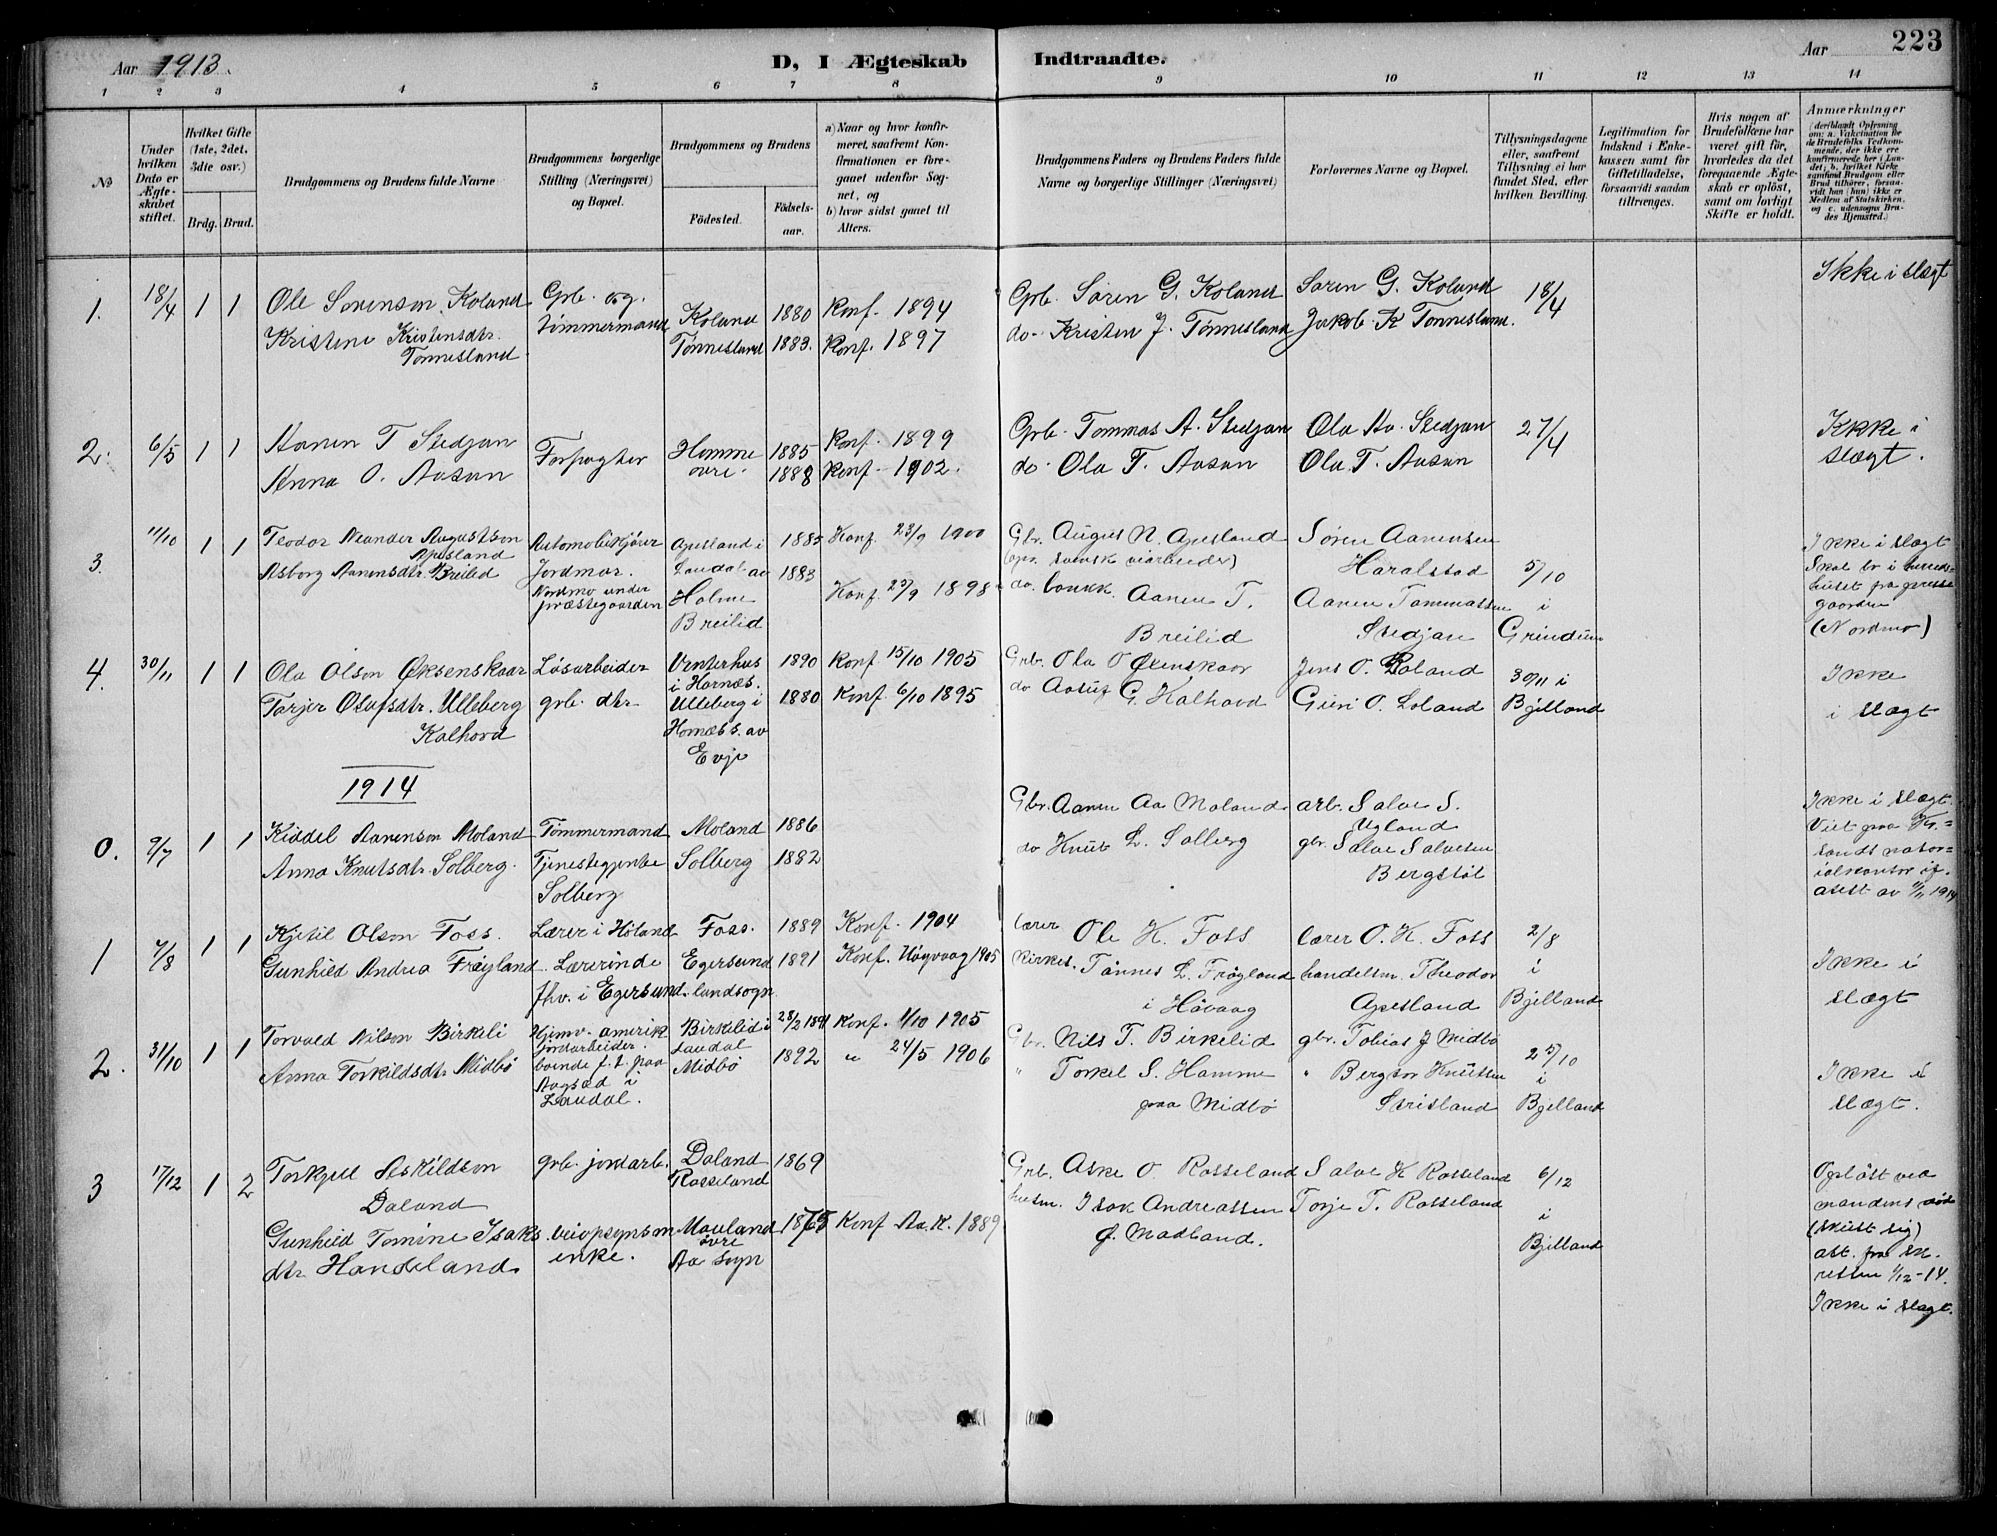 Aar 1913.
D, I Ægteskab Indtraadte.
Aar
223
1 2 3 4 5 6 7 8 9 10 11 12 13 14
No
Under hvilken Dato er Ægteskabet stiftet.
Hvilket Gifte (1ste, 2det, 3dte osv.)
Brdg. Brud.
Brudgommens og Brudens fulde Navne
Brudgommens borgerlige Stilling (Næringsvei) og Bopæl.
Brudgommens og Brudens
Födested. Födsels-aar.
a) Naar og hvor konfirmeret, saafremt Konfirmationen er foregaaet udenfor Sognet, og
b) hvor sidst gaaet til Alters.
Brudgommens Faders og Brudens Faders fulde Navne og borgerlige Stillinger (Næringsvei)
Forlovernes Navne og Bopæl.
Tillysningsdagene eller, saafremt Tillysning ei har fundet Sted, efter hvilken Bevilling.
Legitimation for Indskud i Enkekassen samt for Giftetilladelse, forsaavidt saadan tiltrænges.
Hvis nogen af Brudefolkene har været gift før, hvorledes da det foregaaende Ægteskab er oplöst, samt om lovligt Skifte er holdt.
Anmærkninger
(deriblandt Oplysning om: a. Vakcination for de Brudefolks Vedkommende, der ikke ere konfirmerede her i Landet; b. hvilket Kirkesamfund Brudgom eller Brud tilhører, forsaavidt han (hun) ikke er Medlem af Statskirken, og c. udensogns Brudes Hjemsted.)
1. 18/4 1 1 Ole Sørenson Koland Grb. og Koland 1880 Konf. 1894 Grb. Søren G. Koland Søren G. Koland 18/4 Ikke i slægt
Kristine Kristensdtr. Tønnesland tømmermand Tønnesland 1883. Konf. 1897 do. Kristen J. Tønnesland Jakob K Tønnesland.
2. 6/5 1 1 Aanen T Stedjan Forpagter Homme 1885 Konf. 1899 Grb. Tommas A. Stedjan Ola Aa. Stedjan 27/4 Ikke i
Anna O. Aasan øvre. 1888 Konf. 1902. do. Ola T. Aasan Ola T. Aasan slægt.
3. 11/10 1 1 Teodor Neander Augustson Apesland Automobilkjører Apesland i 1885 Konf. 23/9 1900 Gbr. August N. Apesland Søren Aanensen Ikke i slægt
Asborg Aanensdtr. Breilid Jordmor. Laudal av 1883 Haralstad 5/10 Skal bo i
Nordmo under præstegaarden Holme Konf. 1898 do. Aanen T. Aanen Tommassen i
Breilid Breilid Stedjan Grindum (Nordmo)
4. 30/11 1 1 Ola Olson Øksenskaar Løsarbeider Vinterhus 1890 Konf. 15/10 1905 Grb. Ola O Øksenskaar Jens O. Loland 30/11 i Ikke
i Hornæs.
Tarjer Olufsdtr. Ulleberg grb. dtr Ulleberg i 1880 Konf. 6/10 1895 do G. Kalhovd Guri O. Loland Bjelland i slægt
Kalhovd Hornæs s. av Evje
1914
0. 9/7 1 1 Kiddel Aanenson Moland Tømmermand Moland 1886 Gbr. Aanen Aa Moland arb. Salve S. Ugland Ikke i slægt.
Anna Knutsdtr. Solberg. Tjenestegjente Solberg 1882 do Knut L. Solberg gbr. Salve Salvesen Viet paa Kr.-
Solberg Bergstøl sands notarialkontor if. attest av 1914
1 7/8 1 1 Kjetil Olson Foss. Lærer i Høland Foss. 1889 Konf. 1904 Lærer Ole K. Foss Lærer O. K. Foss 2/8
Gunhild Andrea Frøyland Lærerinde Egersund 1891 Konf. Høyvaag 1905 Kirkes. Tønnes L. Frøyland handelsm. Theodor i Ikke i
fhv. i Egersund. landsogn i Høvaag Apesland Bjelland slægt
2. 31/10 1 1 Torvald Nilson Birkeli Hjemv. amerik. Birkelid i 28/2 1891 Konf. 1/10 1905 Gbr. Nils T. Birkelid gbr. Tobias J Midbø
Anna Torkildsdtr. Midbø jordarbeider. boende f. t. paa Laudal
Midbø 1892 " 24/5 1906 " Torkel S. Homme " Bergtor Knutsen 25/10 i Ikke i
i Laudal. paa Midbø Bjelland slægt.
3 17/12 1 2 Torkjell Askildson grb. jordarb. Daland 1869 Grb. Aske O. Rosseland Salve K Rosseland 6/12 Opløst ved
Daland Rosseland Isak Andreassen Torje T. Rosseland i mandens død
Gunhild Tomine Isaksdtr Handeland. veiopsynsm enke. Mauland øvre Aa Sogn Konf Aa. K. 1889 Madland. Bjelland (skutt sig)
att. fra sk.retten 1/12-14.
Ikke i slægt.